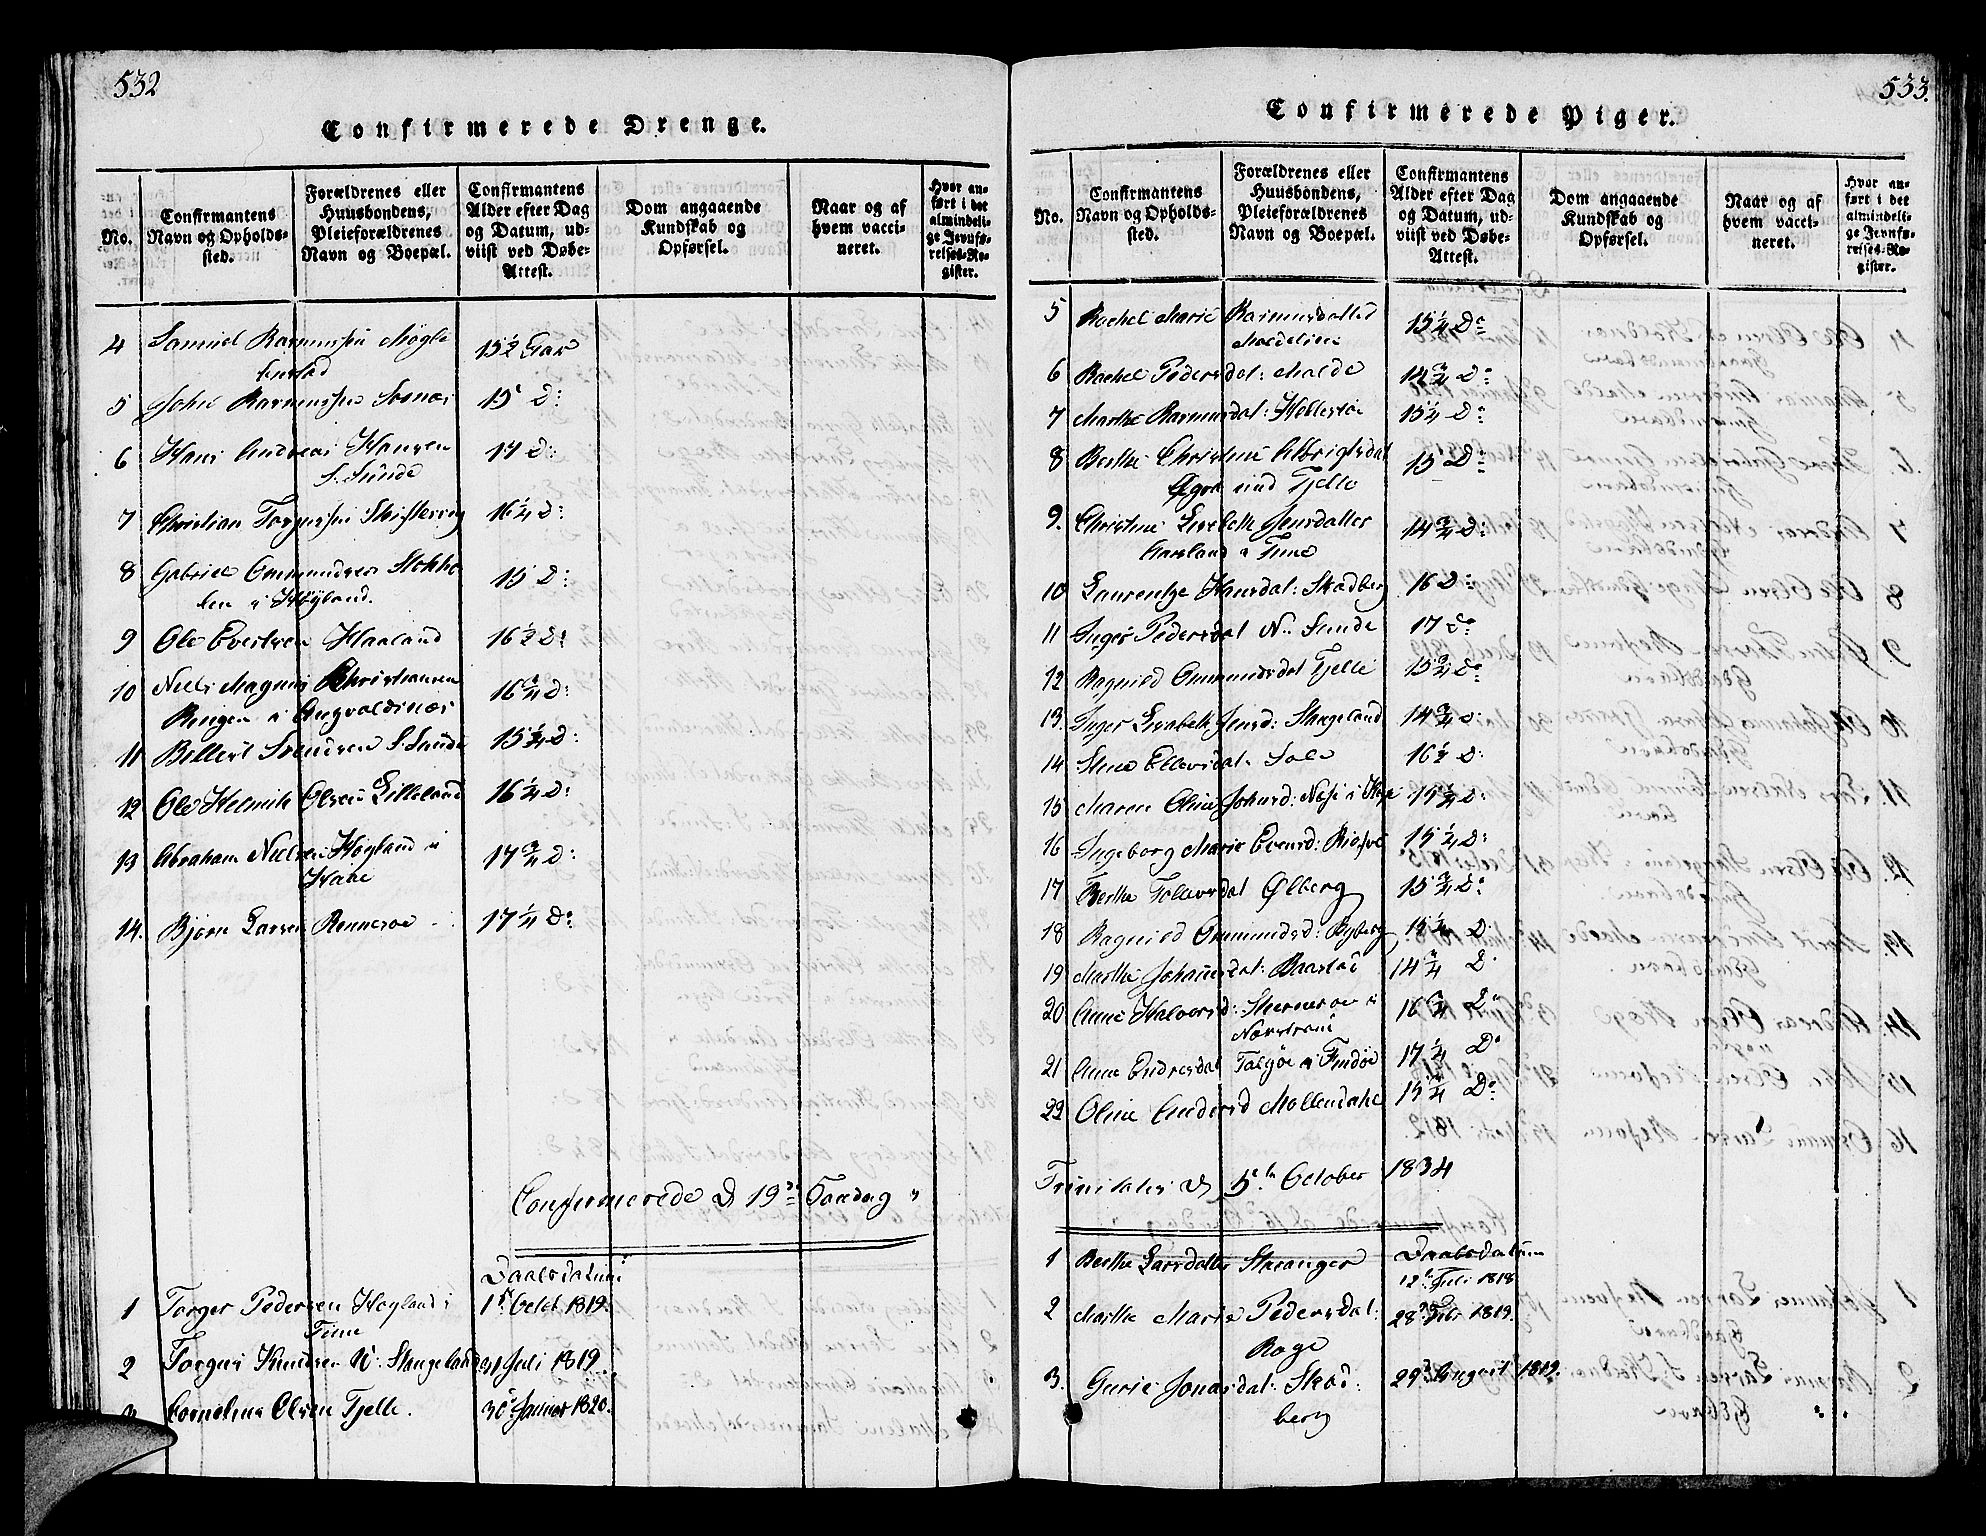 532
Confirmerede Drenge.
No.
Confirmantens Navn og Opholdssted.
Forældrenes eller Huusbondens, Pleieforældrenes Navn og Boepæl.
Confirmantens Alder efter Dag og Datum, udviist ved Døbe-Attest.
Dom angaaende Kundskab og Opførsel.
Naar og af hvem vaccineret.
Hvor anført i det almindelige Jevnførelses-Register.
4 Samuel Rasmussen Mogle 15 1/2 Aar
5 John Rasmussen Sørnes 15 D:
6 Hans Andreas Hansen 14 D:
S. Sunde
7 Christian Torgersen 16 1/4 D:
8 Gabriel Ommundsen Stokke 15 D:
len i Høyland.
9 Ole Evertsen Haaland 16 1/2 D:
10 Niels Magnus Christiansen 16 3/4 D:
Ringen i Augvaldsnæs
11 Bellert Svendsen S. Sunde 15 3/4 D:
12 Ole Helmik Olsen Lilleland 16 1/4 D:
13 Abraham Nielsen Høgland i 17 3/4 D:
Haae
14. Bjørn Larsen Rennesøe 17 1/4 D:
Confirmerede D 19de Søndag
Daabsdatum
1 Torger Pedersen Høgland i 1ste Octob. 1819.
Time
2 Torgeri Knudsen N: Stangeland 31 Juli 1819.
3 Cornelius Olsen Tjelle. 30 Januar 1820.
533.
Confirmerede Piger.
No.
Confirmantens Navn og Opholdssted.
Forældrenes eller Huusbondens, Pleieforældrenes Navn og Boepæl.
Confirmantens Alder efter Dag og Datum, udviist ved Døbe-Attest.
Dom angaaende Kundskab og Opførsel.
Naar og af hvem vaccineret.
Hvor anført i det almindelige Jevnførelses-Register.
5 Rachel Marie Rasmusdatter 15 1/4 D:
6 Rachel Pedersdat: Malde 14 3/4 D:
7 Marthe Rasmusdat: Hellestøe 15 1/4 D:
8 Berthe Christine Albrigtsdat 15 D:
Tjelle
9. Christine Lisbeth Jensdatter 14 3/4 D:
Aarsland i Time
10 Laurentze Hansdat: Skadberg 16 D:
11 Inger Pedersdat N: Sunde 17 D:
12 Ragnild Ommundsdat Tjelle 15 3/4 D:
13. Inger Lisbeth Jensd: Stangeland 14 3/4 D:
14 Stine Ellevsdat: Sole 16 1/2 D:
15 Maren Oline Johnsd: 15 3/4 D:
16 Ingeborg Marie Evensd: 15 1/4 D:
17 Berthe Tollevsdat Ølberg 15 3/4 D:
18 Ragnild Ommundsd: Byberg 15 1/4 D:
19 Marthe Johannesdat: Raastad 14 3/4 D:
20 Anne Halvorsd: Stjernerøe i 16 3/4 D:
Nærstrand
21 Anne Endresdat Talgøe i Findøe 17 1/4 D:
22 Oline Andersd Mollendahl 15 3/4 D:
Trinitatis D 5te October 1834
Daabsdatum
1 Berthe Larsdatter Stavanger 12te Juli 1818
2 Marthe Marie Pedersdat: 28de Febr 1819.
Roge
3. Gurie Jonasdat: Skad: 29de August 1819.
berg